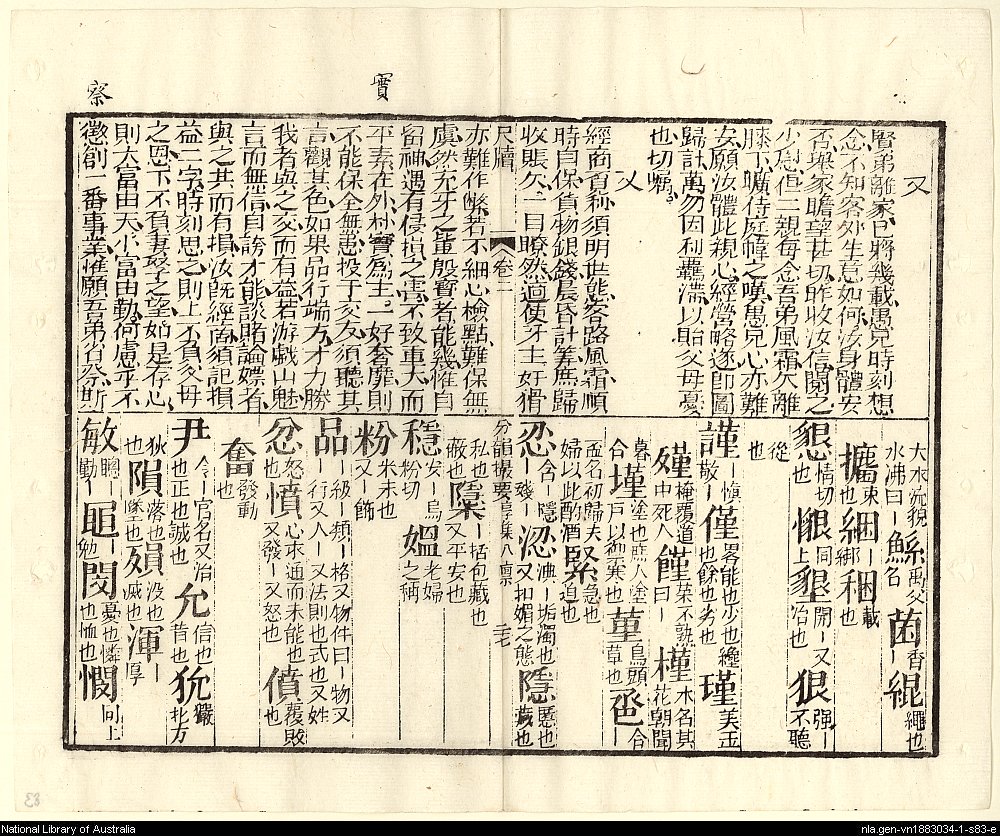 實
察
又
賢弟離家已將幾載愚兄時刻想
念不知客外生意如何汝身體安
否舉家瞻望甚切昨收汝信閱之
少慰但二親每念吾弟風霜久離
膝下曠侍庭幃之嘆愚兄心亦難
安願汝體此親心經營略遂即圖
歸計萬勿因利羈滯以貽父母憂
也切囑
又
經商貿利須明世態客路風霜順
時自保貨物銀錢晨昏計算庶歸
收賬欠一目瞭然迴使牙主奸猾
尺牘
卷二
亦難作弊若不細心檢點難保無
虞然充牙之輩殷實者能幾惟自
留神遇有侵損之害不致重大而
平素在外朴實為主一好奢靡則
不能保全無患投于交友須聽其
言觀其色如果品行端方才力勝
我者與之交而有益若游戲山魈
言而無信自誇才能談賭論嫖者
與之共而有損汝既經商須記損
益二字時刻思之則上不負父母
之恩下不負妻孥之望如是存心
則大富由天小富由勤何慮乎不
懲創一番事業惟願吾弟省察斯
大水㳅貌 鯀禹父名
水沸曰丨
菌香丨 緄繩也
攟束也 綑丨綁 稇載也
懇情切也 懇同上 墾開丨又治也 狠强丨不聽
從也
謹丨慎敬丨 僅畧能也少也纔也餘也劣也 瑾美玉
殣埋覆道中死人 饉菜不熟曰丨 槿木名其花朝開
暮合 墐塗也 堇烏頭草也 巹合
丨
婦以此酌酒 緊急也
忍含丨殘丨 隱匿也藏也
分韻撮要
私也蔽也 檃丨括包藏也又平安也
穩安丨 媼老婦之稱
粉米末也又丨飾
品丨級丨類丨格又物件曰丨物又
丨行又人丨又法則也式也又姓
忿怒也 憤心求通而未能也又發丨又怒也 僨覆敗也
奮發動也
尹令丨官名又治也正也誠也 允信也肯也 狁玁
狄也 隕落也墜也 殞沒也 渾丨厚
敏聰丨勤丨 黽丨勉 閔憂也憐也恤也 憫同上
National Library of Australia
nla.gen-vn1883034-1-s83-e